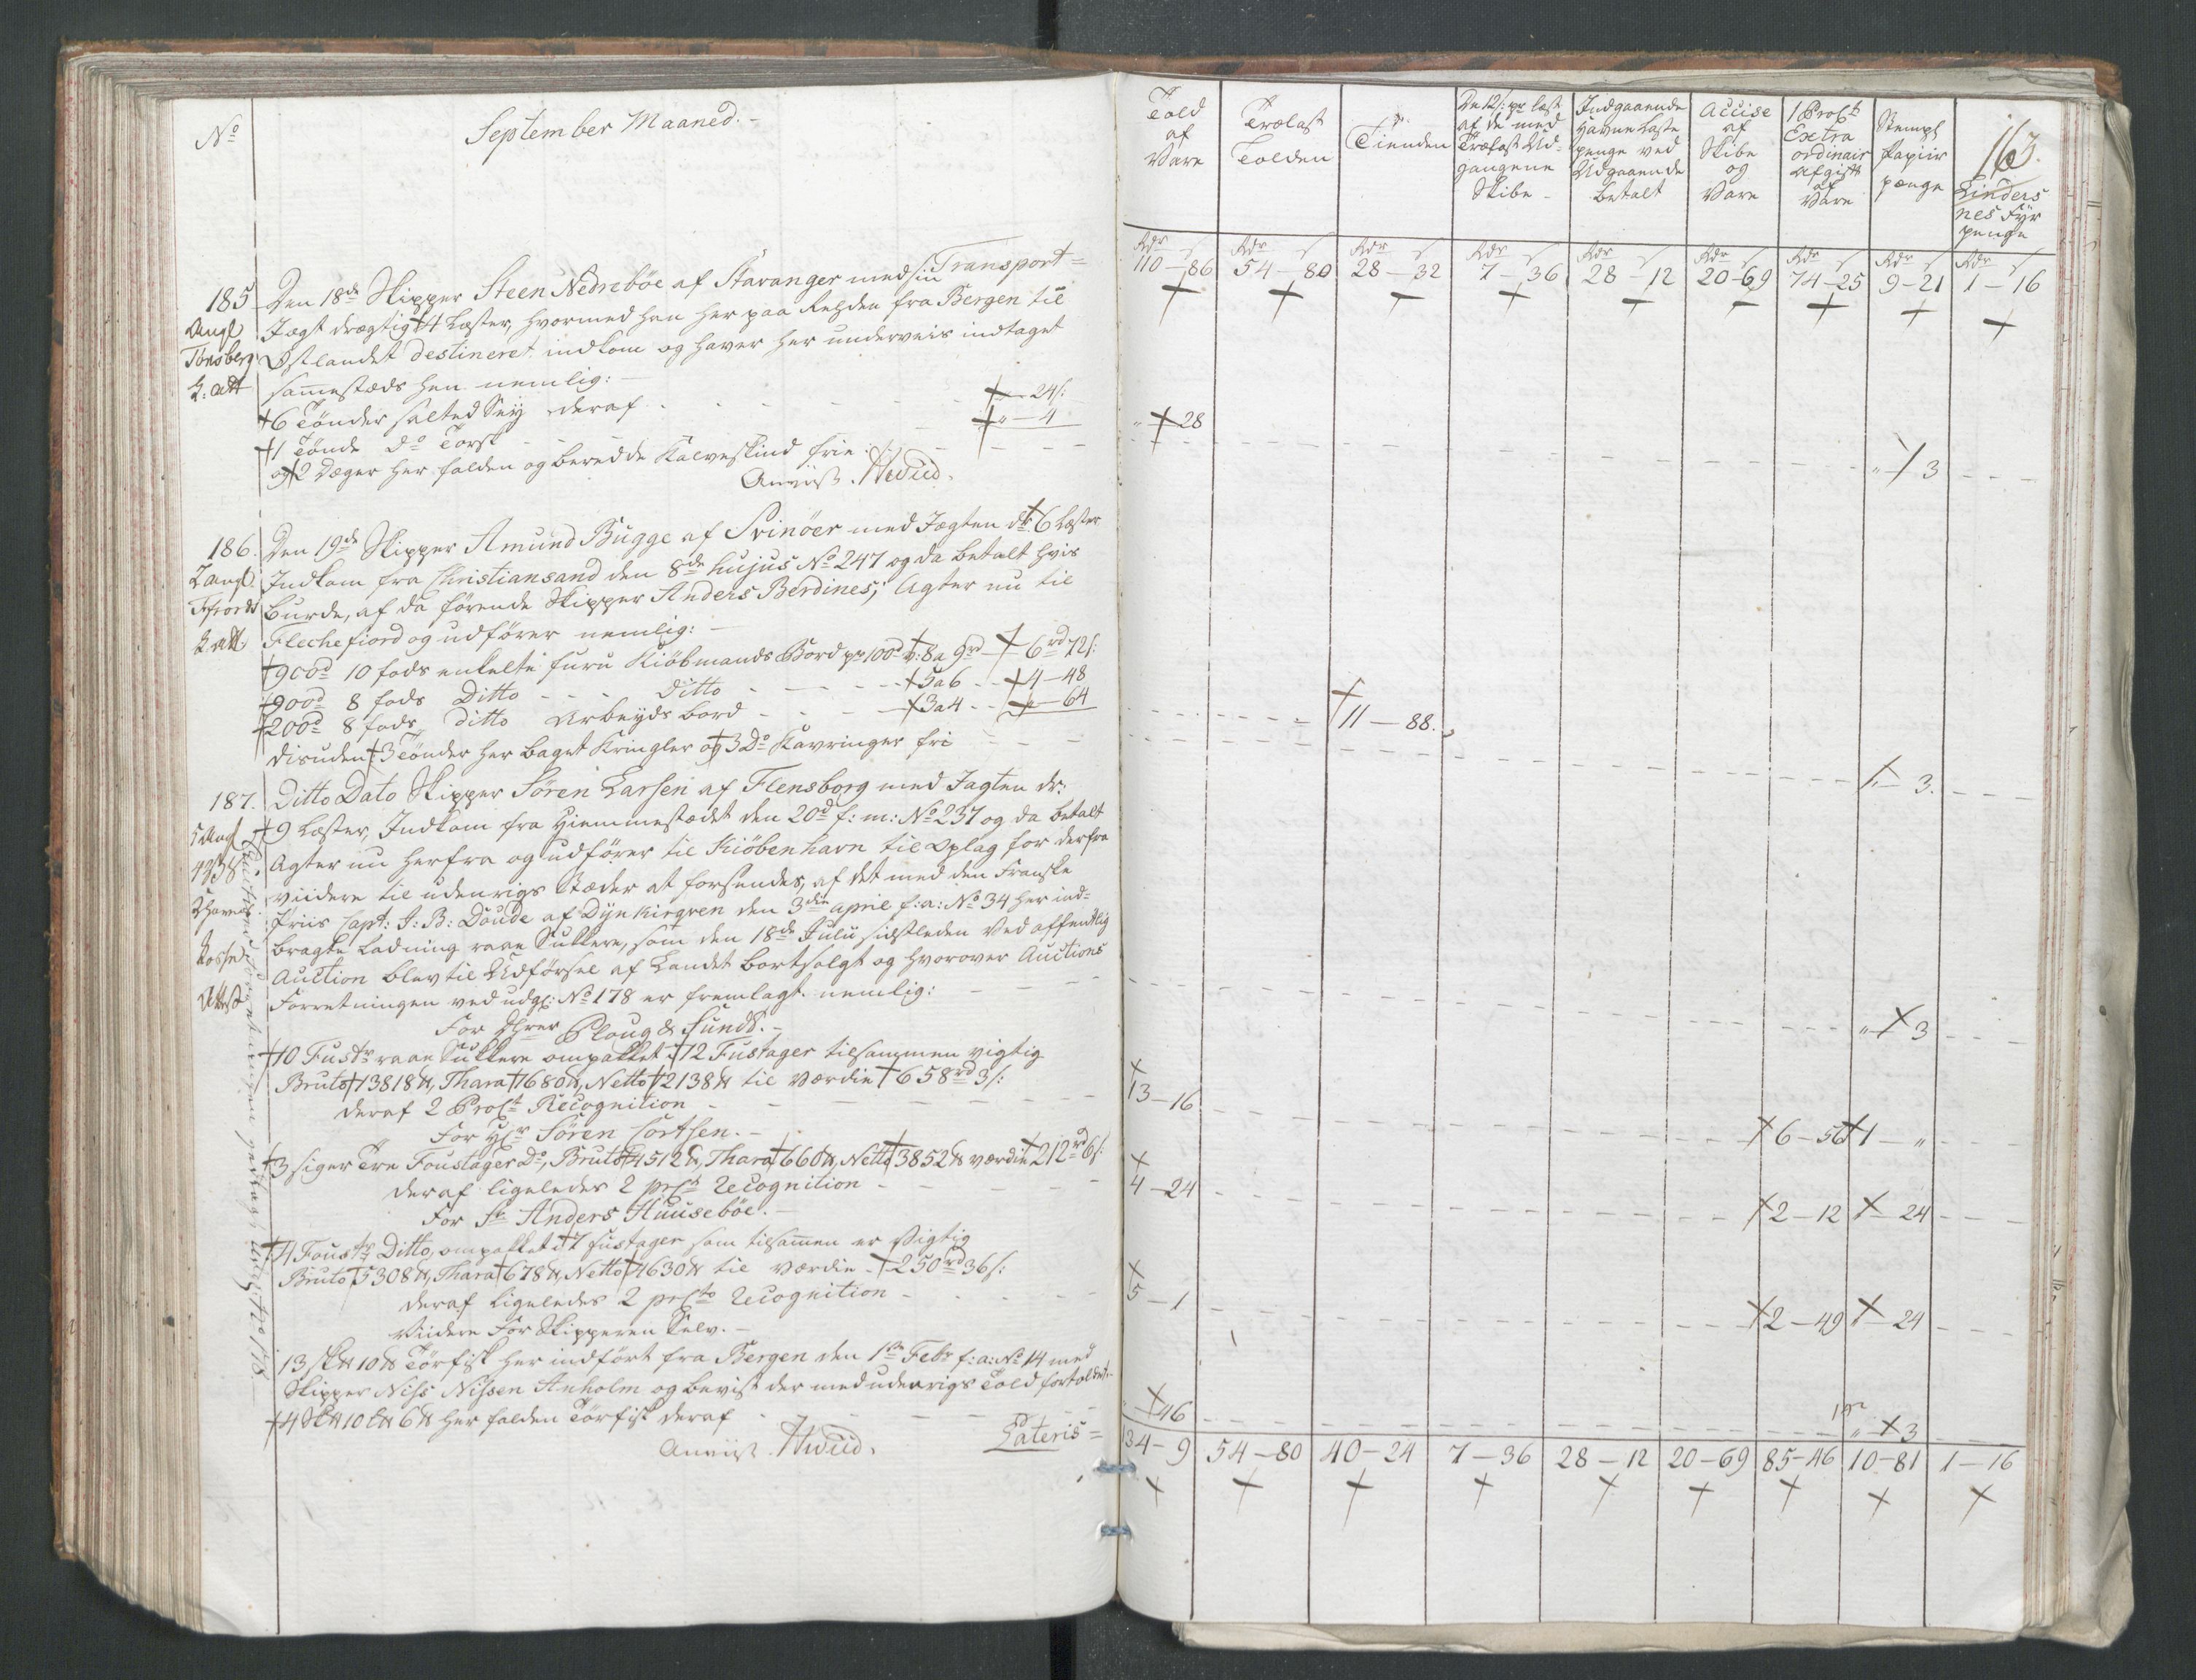 No
September Maaned.-
Transport=
185 Den 18de Skipper Steen Nedrebøe af Stavanger med sin
Jagt drægtig 4 Læster, hvormed han her paa Rehden fra Bergen til
Tønsberg Østlandet destineret indkom og haver her underveis indtaget
sammestæds hen nemlig:
6 Tønder salted Sey deraf - 24 s:
1 Tønde Do Torsk - „ - 4
og 2 Deger her falden og beredde Kalveskind frie.
Anviist. Hwiid.
186. Den 19de Skipper Amund Bugge af Svinöer med Jagten dr. 6 Læster
Indkom fra Christiansand den 8de hujus No 247 og da betalt hvis
burde, af da førende Skipper Anders Berdines; Agter nu til
Flechefiord og udfører nemlig:
900d 10 fods enkelte furu Kiöbmands Bord pr 100d 8 a 9rd - 6rd 72 s:
900d 8 fods Ditto - ditto - 5a6 - 4-48
200d 8 fods ditto Arbeyds bord - 3a4 - „-64
disuden 3 Tønder her baget Kringler og 3 Do Kavringer fri
187. Ditto Dato Skipper Sören Larsen af Flensborg med Jagten dr:
9 Læster, Indkom fra Hiemmestædet den 20d f: m: No 237 og da betalt
Agter nu herfra og udfører til Kiöbenhavn til Oplag for derfra
viidere til udenrigs Stæder at forsendes, af det med den Franske
Priis Capt: J: B: Doude af Dynkirqven den 3die april f: a: No 34 her ind-
bragte Ladning raae Sukkere, som den 18de Julii sidstleden ved offentlig
Auction blev til Udførsel af Landet bortsolgt og hvorover Auctions
Attest Forretningen ved udg: No 178 er fremlagt nemlig:
For Hrer Ploug & Sundt.-
10 Fustr raae Sukkere ompakket i 12 Fustager tilsammen vigtig
Bruto 13818 ℔, Thara 1680 ℔, Netto 12138 ℔ til Værdie 658rd 3 s:
deraf 2 ProCt Recognition
For Hr Sören Cortsen.-
3 siger Tre Foustager Do, Bruto 4512 ℔, Thara 660 ℔, Netto 3852 ℔ værdie 212rd 6 s:
deraf ligeledes 2 prCt Recognition
For Sr Anders Huusebøe.-
4 Foustr Ditto, ompakket i 7 fustager som tilsammen er vigtig
Bruto 5308 ℔, Thara 678 ℔, Netto 4630 ℔ til værdie - 250rd 36 s:
deraf ligeledes 2 prCto Recognition
Viidere For Skipperen Selv.-
13 10 ℔ Tørfisk her indført fra Bergen den 1te Febr f: a: No 14 med
Skipper Niss Nissen Anholm og bevist der med udenrigs Told fortoldet.
4 10 6 ℔ her falden Tørfisk deraf
Anviist. Hwiid.
Lateris=
163.
Told af Vare
Trælast Tolden
Tienden
De 12 s: pr læst af de med Trælast Udgangene Skibe
Indgaaende Havne Laste penge ved Udgaaende betalt
Accise af Skibe og Vare
1 ProCt Extra ordinair Afgift af Vare
Stempl papiir penge
Linders nes Fyr penge
Rdr s Rdr s Rdr s Rdr s Rdr s Rdr s Rdr s Rdr s Rdr s
110-86 54-80 28-32 7-36 28-12 20-69 74-25 9-21 1-16
„ - 28
„ - 3
11-88.
„ - 3.
„ - 3
13-16
6-56 1-„
4-24
2-12 - 24
5-1
2-49 - 24
„ - 46
„ - 3
134-9 54-80 40-24 7-36 28-12 20-69 85-46 10-81 1-16